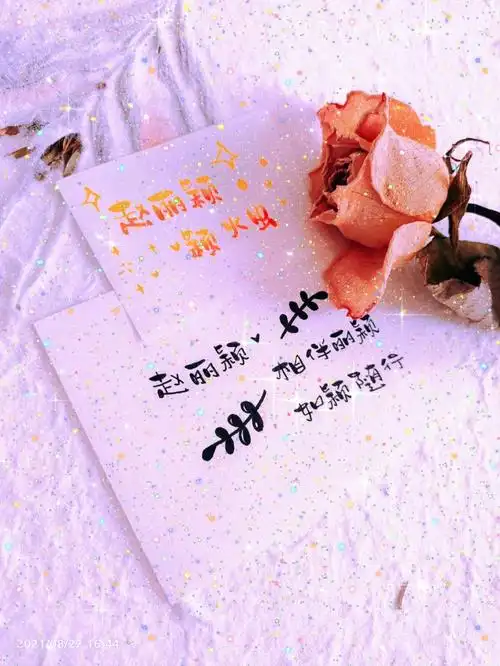 赵丽颖
颖火虫
赵丽颖
相伴丽颖
如颖随行
2021/8/22 16:44